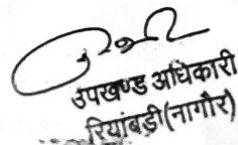 उपखण्ड अधिकारी
रियांबड़ी(नागौर)